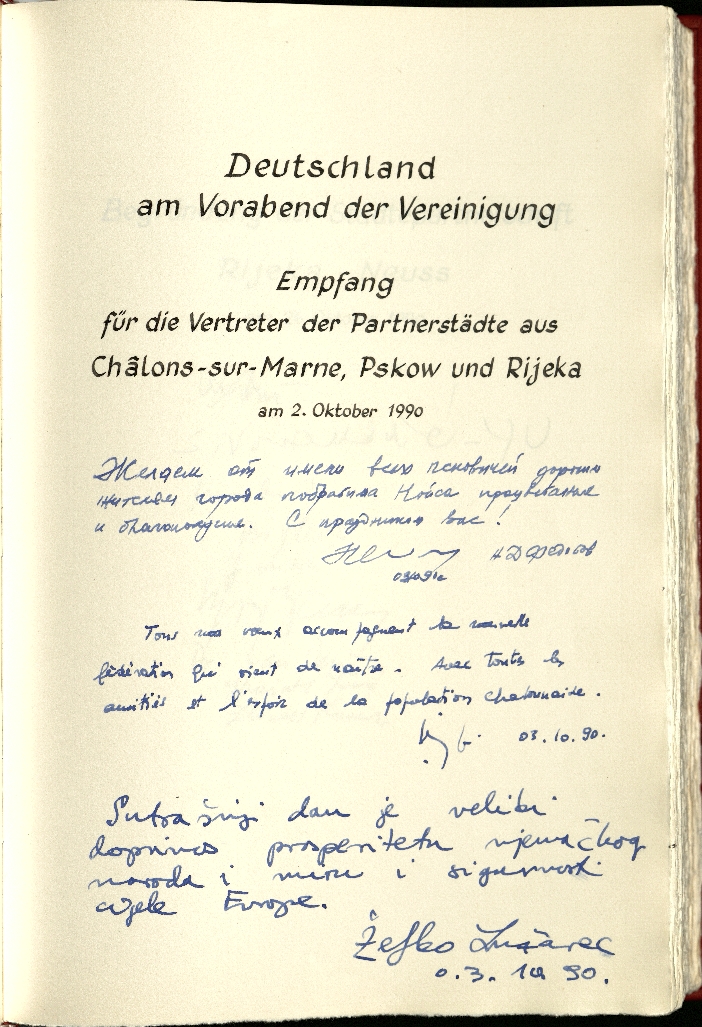 Deutschland
am Vorabend der Vereinigung
Empfang
für die Vertreter der Partnerstädte aus
Châlons-sur-Marne, Pskow und Rijeka
am 2. Oktober 1990
Желаем от имени всех псковичей дорогим
жителям города побратима Нойса процветания
и благополучия. С праздником вас!
03.10.90
Tous nos vœux accompagnent la nouvelle
fédération qui vient de naître. Avec toutes les
amitiés et l'espoir de la population chalonnaise.
03.10.90.
Sutrašnji dan je veliki
doprinos prosperitetu njemačkog
naroda i miru i sigurnosti
cijele Evrope.
Željko Lužavec
03.10.90.